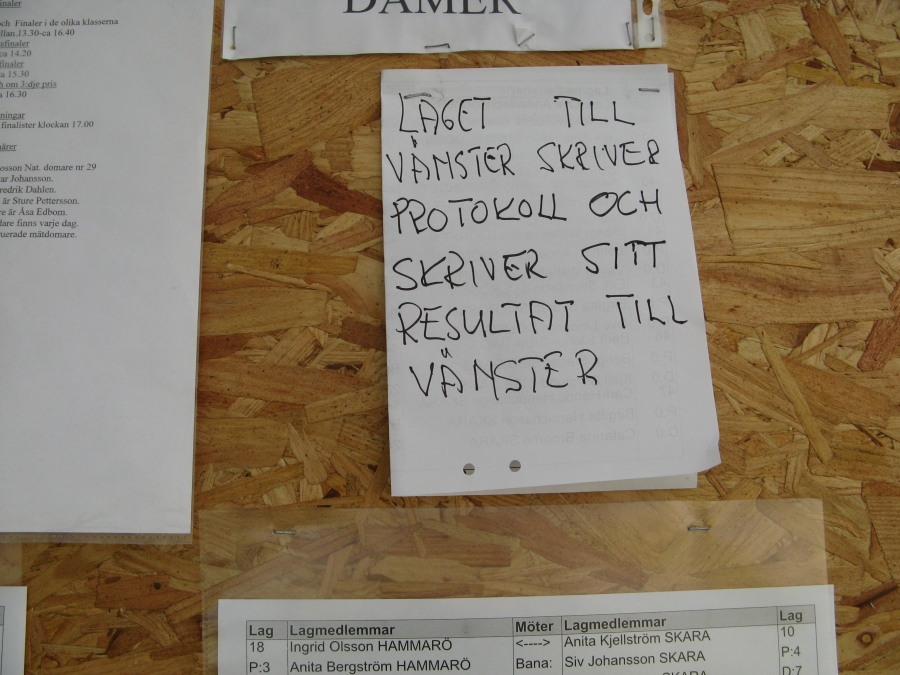 DAMER
och Finaler i de olika klasserna
llan.13.30-ca 16.40
ca 14.20
finaler
ca 15.30
h om 3:dje pris
ca 16.30
ningar
finalister klockan 17.00
osson Nat. domare nr 29
ar Johansson.
redrik Dahlen.
är Sture Pettersson.
re är Åsa Edbom.
dare finns varje dag.
uerade mätdomare.
LAGET TILL
VÄNSTER SKRIVER
PROTOKOLL OCH
SKRIVER SITT
RESULTAT TILL
VÄNSTER
Lag Lagmedlemmar Möter Lagmedlemmar Lag
18 Ingrid Olsson HAMMARÖ <----> Anita Kjellström SKARA 10
P:3 Anita Bergström HAMMARÖ Bana: Siv Johansson SKARA P:4
D:7